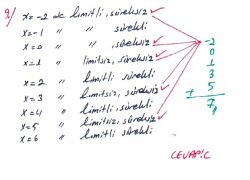 9/ x=-2 de limitli, süreksiz ✓
x=-1 " " sürekli
x=0 " " , süreksiz ✓
x=1 " limitsiz, süreksiz ✓
x=2 " limitli sürekli
x=3 " limitsiz, süreksiz ✓
x=4 " limitli, sürekli
x=5 " limitsiz, süreksiz ✓
x=6 " limitli sürekli
-2
0
1
3
+ 5
7
CEVAP: C